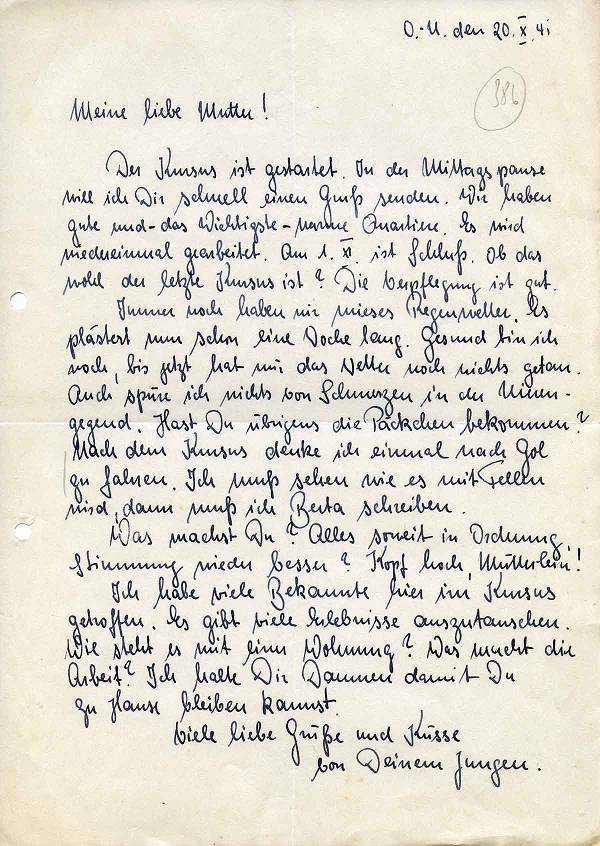 O.-U. den 20. X. 41
386
Meine liebe Mutter!
Der Kursus ist gestartet. In der Mittagspause
will ich Dir schnell einen Gruß senden. Wir haben
gute und - das Wichtigste - warme Quartiere. Es wird
wiedereinmal gearbeitet. Am 1. XI. ist Schluß. Ob das
wohl der letzte Kursus ist? Die Verpflegung ist gut.
Immer noch haben wir mieses Regenwetter. Es
plästert nun schon eine Woche lang. Gesund bin ich
noch, bis jetzt hat mir das Wetter noch nichts getan.
Auch spüre ich nichts von Schmerzen in der Nieren-
gegend. Hast Du übrigens die Päckchen bekommen?
Nach dem Kursus denke ich einmal nach Gol
zu fahren. Ich muß sehen wie es mit Fellen
wird, dann muß ich Berta schreiben.
Was machst Du? Alles soweit in Ordnung,
Stimmung wieder besser? Kopf hoch, Mütterlein!
Ich habe viele Bekannte hier im Kursus
getroffen. Es gibt viele Erlebnisse auszutauschen.
Wie steht es mit einer Wohnung? Was macht die
Arbeit? Ich halte Dir Daumen damit Du
zu Hause bleiben kannst.
Viele liebe Grüße und Küsse
von Deinem Jungen.